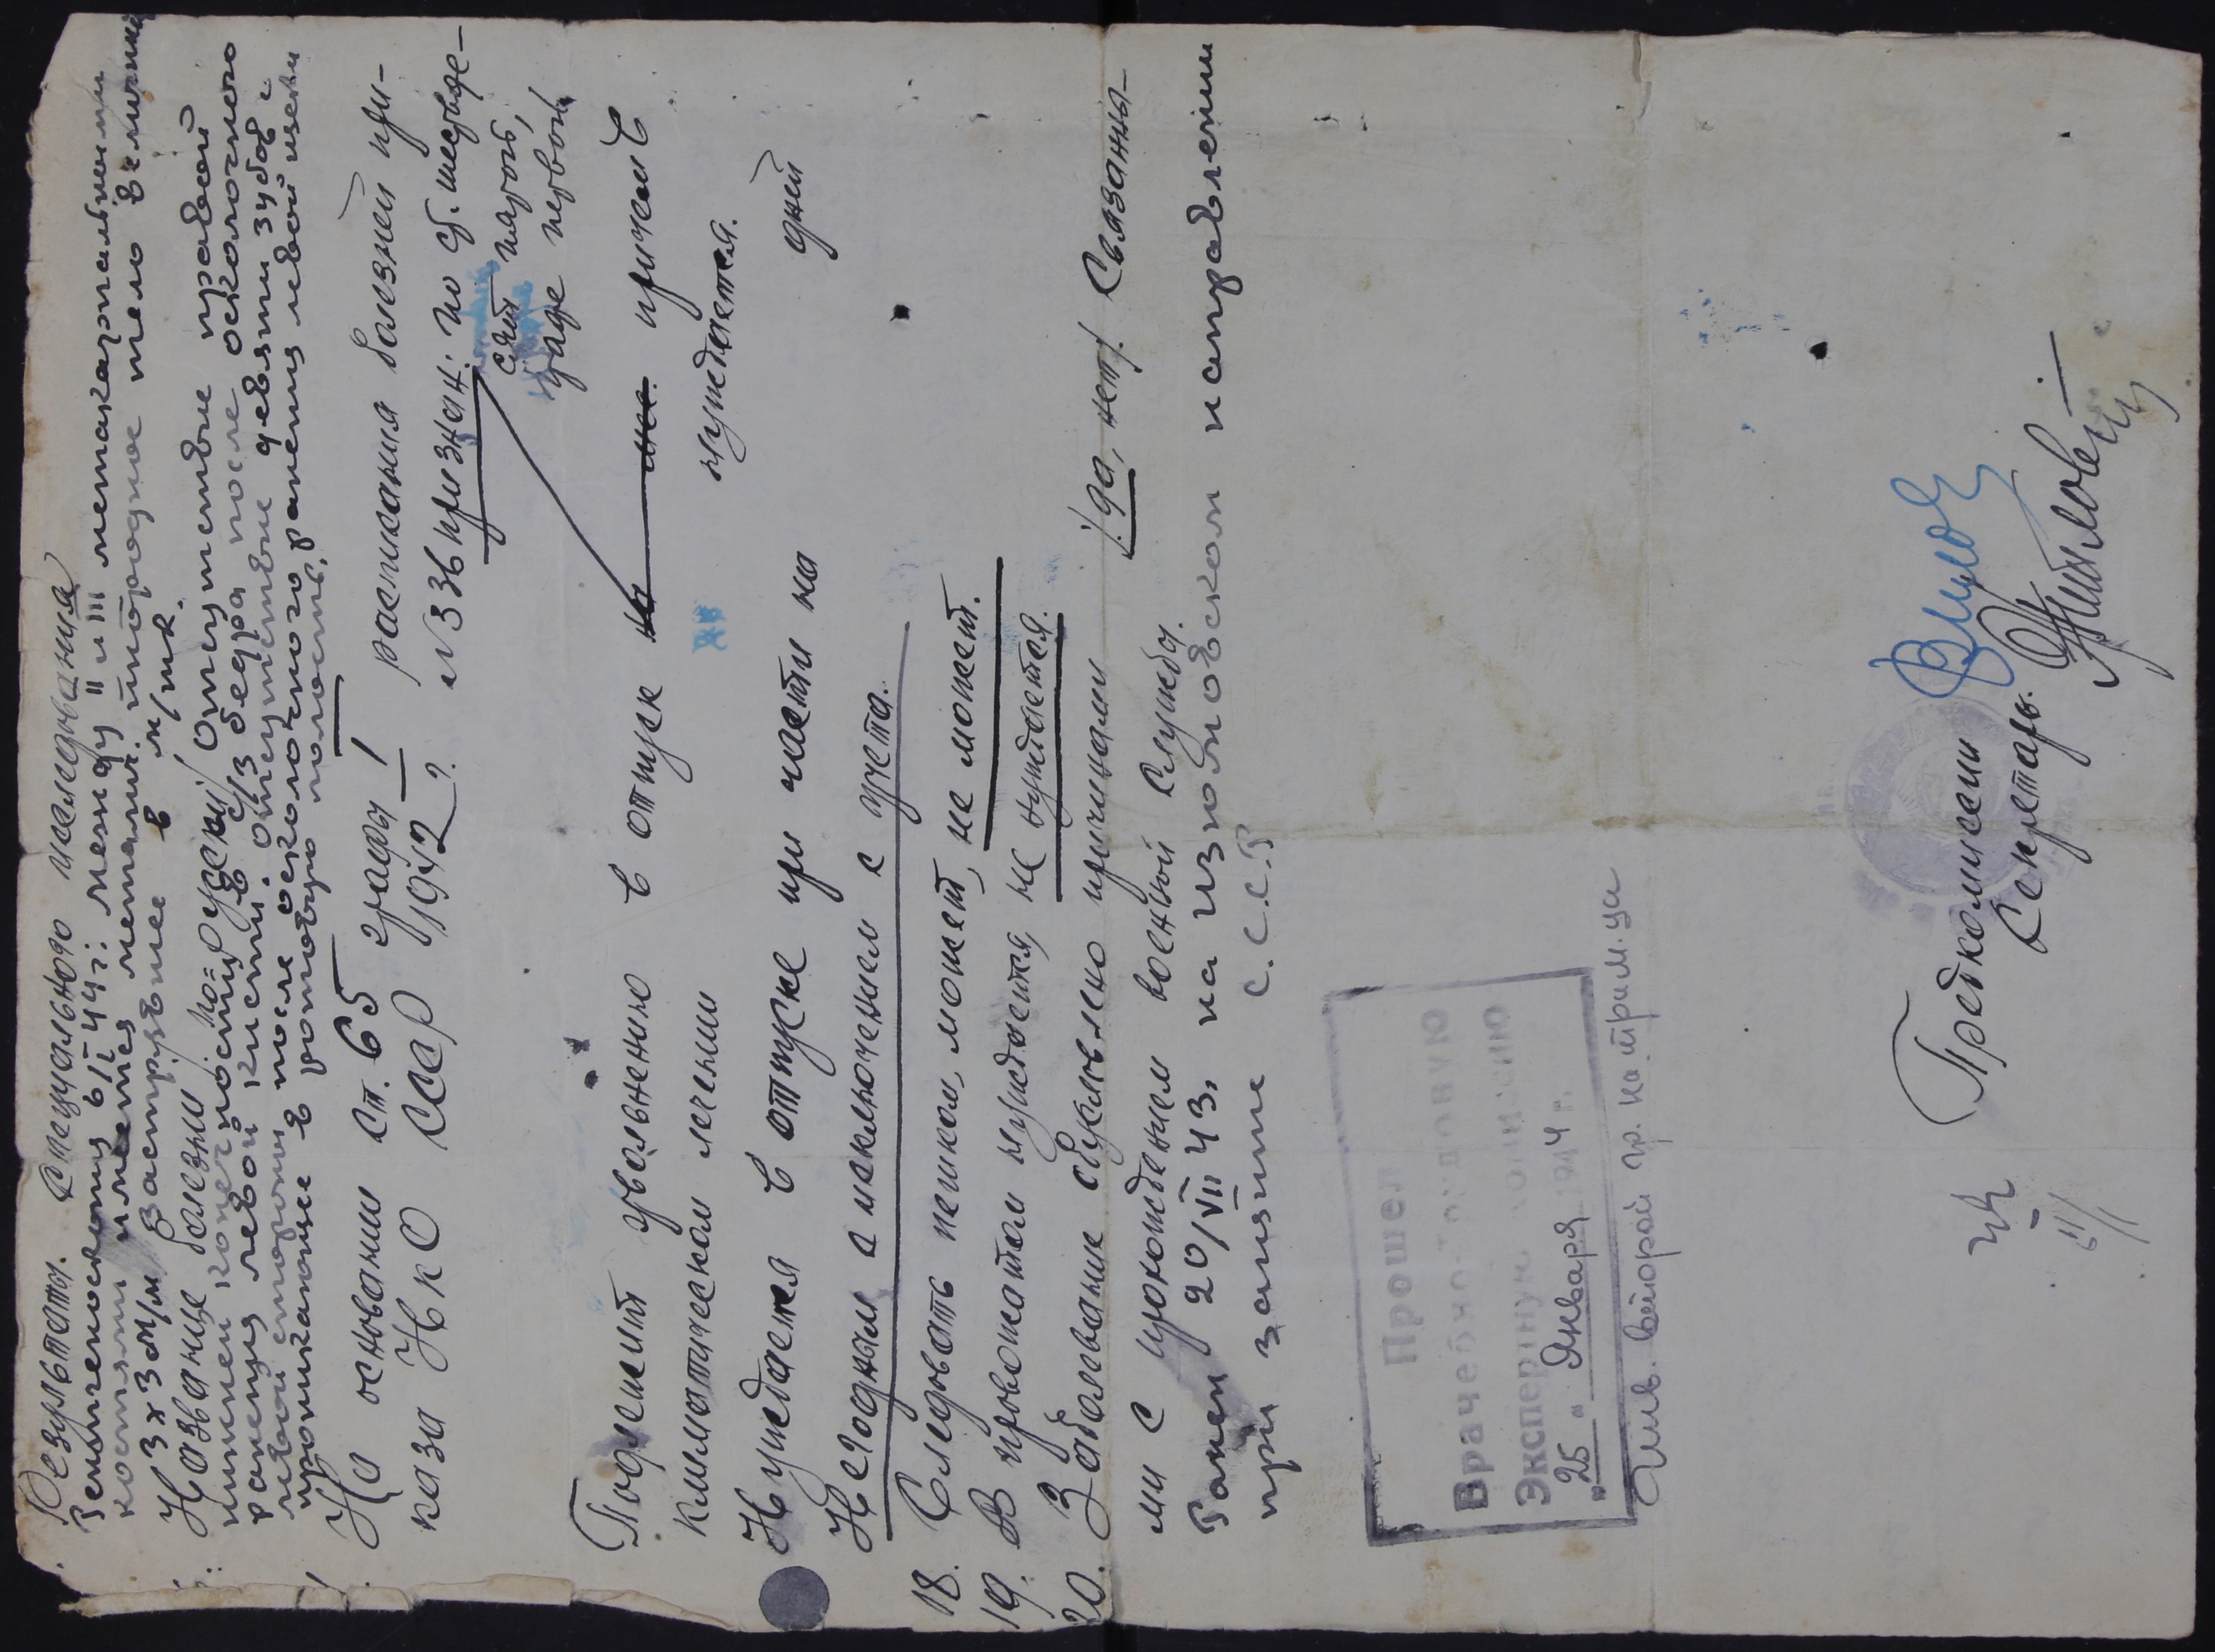 Результаты. специального исследования
Рентгеноскопия 6/I 44 г: между II и III метакарпальными
костями имеется металл. инородное тело величин.
3 х 3 м/м Застрявшее в м/тк.
Название болезни /по-русски/ Отсутствие правой
нижней конечности в с/3 бедра после осколочного
ранения левой кисти. Отсутствие девяти зубов с
левой стороны после осколочного ранения левой щеки
проникающие в ротовую полость.
На основании ст. 65 графы I расписания болезней при-
каза НКО СССР 1942 г. №336 признан: по ст. шестьде-
сят пятой,
графе первой
Подлежит увольнению в отпуск на не причем в
климатическом лечении нуждается.
Нуждается в отпуске при части на дней
Не годным с исключением с учета.
18. Следовать пешком, может, не может.
19. В провожатом нуждается, не нуждается.
20. Заболевание обусловлено причинами /да, нет/. Связанны-
ми с прохождением военной службы.
Ранен 20/VII 43, на изюмовском направлении
при защите С.С.Р
Прошел
Врачебно-трудовую
Экспертную комиссию
"25" Января 1944 г.
Инв. второй гр. на
Предкомиссии
Секретарь.